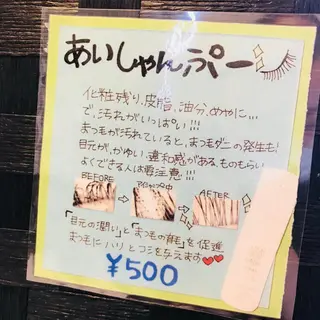 あいしゃんぷー
化粧残り、皮脂、油分、めやに…
で、汚れがいっぱい!!!
まつ毛が汚れていると、まつ毛ダニの発生も!
目元が、かゆい、違和感がある、ものもらい
よくできる人は要注意!!!
BEFORE
アイシャンプー中
AFTER
「目元の潤い」と「まつ毛の育毛」を促進
まつ毛にハリとコシを与えます
¥500